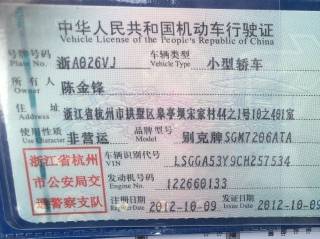 中华人民共和国机动车行驶证
Vehicle License of the People's Republic of China
号牌号码 浙A026VJ 车辆类型 小型轿车
Plate No. Vehicle Type
所有人 陈金锋
Owner
住址 浙江省杭州市拱墅区皋亭坝宋家村44之1号10之401室
Address
使用性质 非营运 品牌型号 别克牌SGM7206ATA
Use Character Model
浙江省杭州
市公安局交
通警察支队
车辆识别代号 LSGGA53Y9CH257534
VIN
发动机号码 122660133
Engine No.
注册日期 2012-10-09 发证日期 2012-10-09
Register Date Issue Date